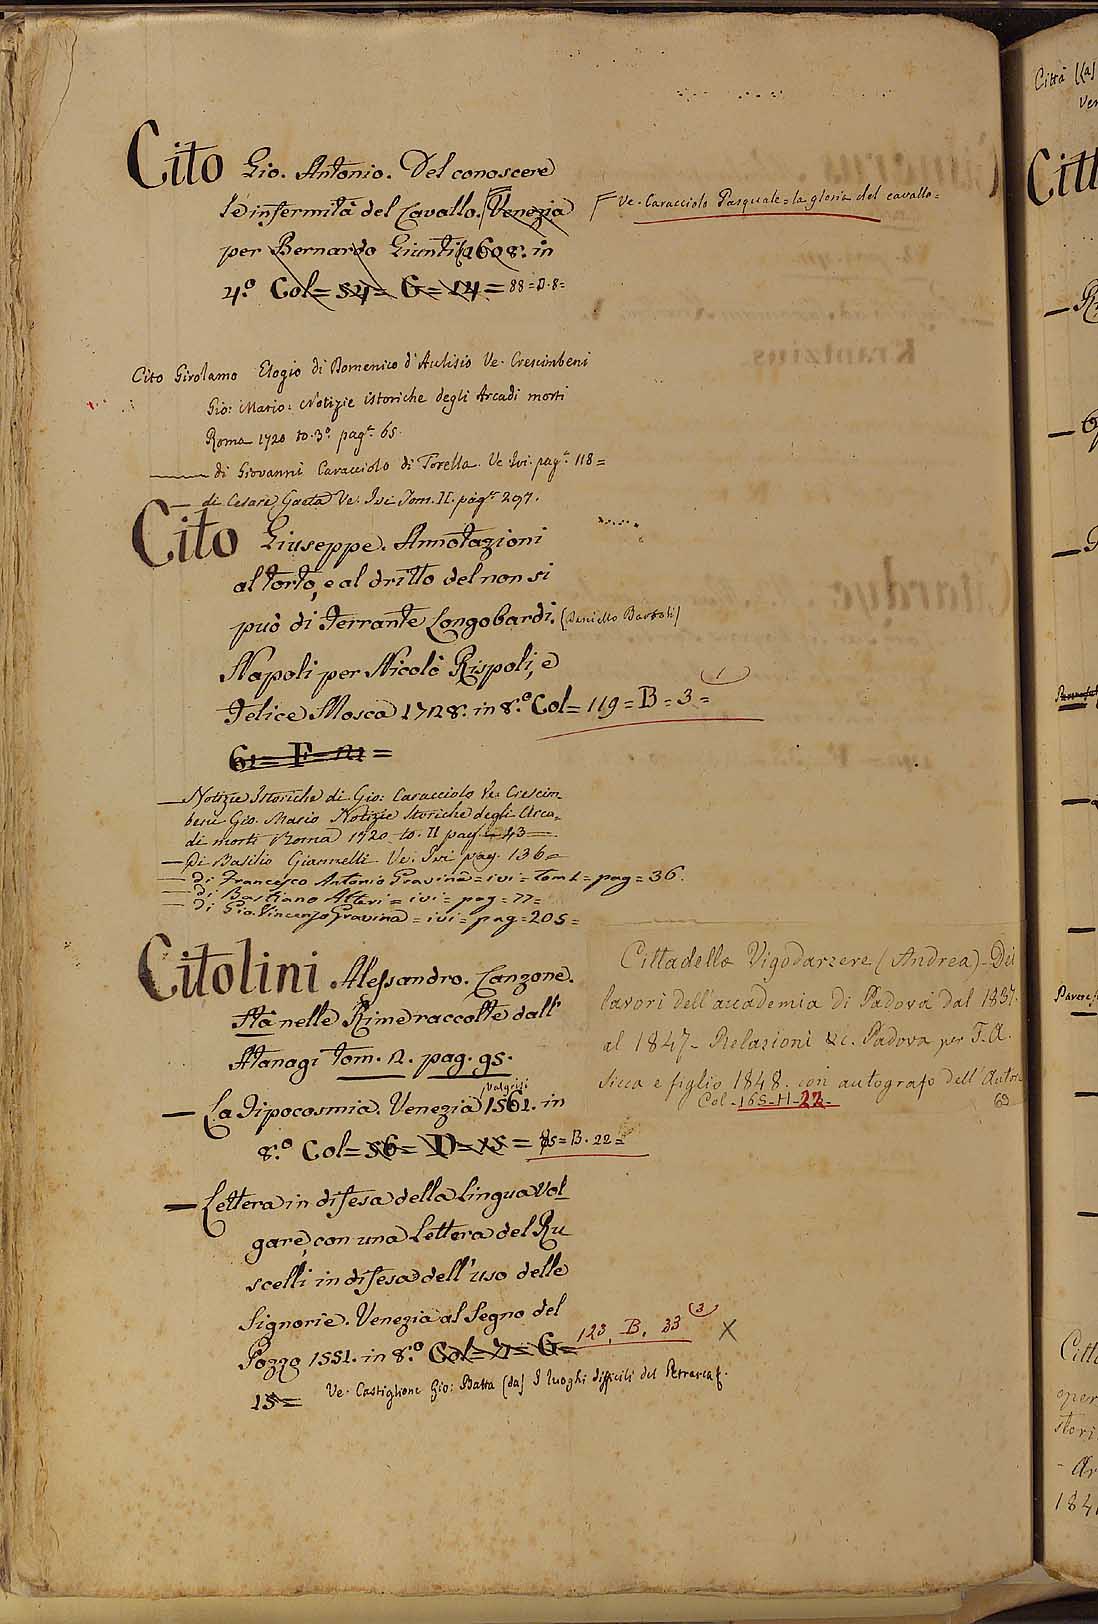 Cito Gio. Antonio. Del conoscere
le infermità del Cavallo. Venezia
per Bernardo Giunti 1608. in
4.º Col= 54= G= 14= 88=D.8=
Ve. Caracciolo Pasquale = la gloria del cavallo=
Cito Girolamo Elogio di Domenico d'Aulisio Ve. Crescimbeni
Gio: Mario: Notizie istoriche degli Arcadi morti
Roma 1720 to. 3º pag.ª 65.
di Giovanni Caracciolo di Torella. Ve Ivi pag.ª 118=
di Cesare Gaeta Ve: Ivi Tom. II. pag.ª 297.
Cito Giuseppe. Annotazioni
al torto, e al dritto del non si
può di Ferrante Longobardi. (Daniello Bartoli)
Napoli per Nicolò Rispoli, e
Felice Mosca 1728. in 8.º Col= 119= B= 3=
1
61= F=
— Notizie Istoriche di Gio: Caracciolo Ve: Crescim-
beni Gio. Mario Notizie Storiche degli Arca-
di morti Roma 1720 to. II pag. 43
— Di Basilio Giannelli Ve: Ivi pag. 136=
— di Francesco Antonio Gravina= ivi= tom 1= pag= 36.
— di Bastiano Alteri= ivi= pag= 77=
— di Gio. Vincenzo Gravina= ivi= pag= 205=
Citolini. Alessandro. Canzone.
Sta nelle Rime raccolte dall'
Atanagi tom. 2. pag. 95.
Valgrisi
— La Tipocosmia. Venezia 1561. in
8.º Col= 56= D= 15= 85= B. 22=
— Lettera in difesa della lingua vol
gare, con una Lettera del Ru
scelli in difesa dell'uso delle
Signorie. Venezia al Segno del
Pozzo 1551. in 8.º Col= 71= G= 123. B. 33
3
X
15= Ve. Castiglione Gio: Batta (da) I luoghi difficili del Petrarca
Cittadella Vigodarzere (Andrea)- Dei
lavori dell'accademia di Padova dal 1837.
al 1847- Relazioni &c. Padova per F. A.
Sicca e figlio 1848. con autografo dell'Autore
Col- 165-H-22-
69
Città
Citt